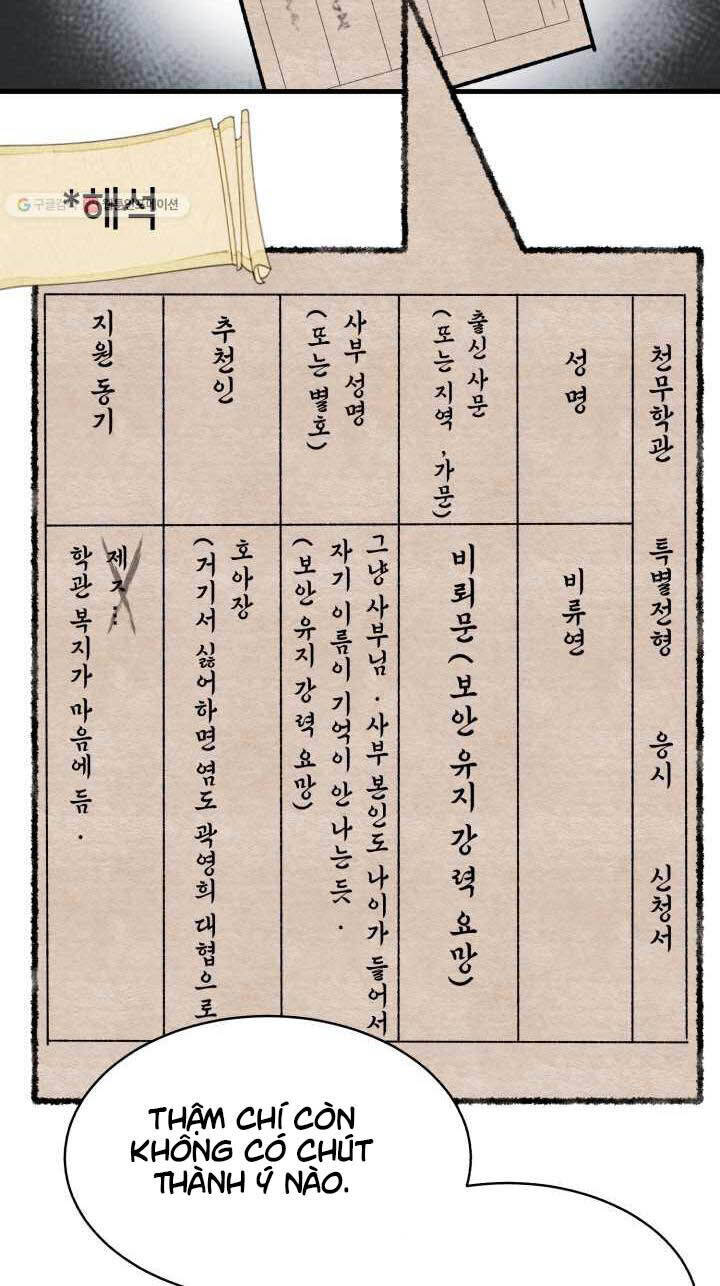 *해석
천무학관 특별전형 응시 신청서
성명
비류연
출신 사문
(또는 지역, 가문)
비뢰문(보안 유지 강력 요망)
사부 성명
(또는 별호)
그냥 사부님. 사부 본인도 나이가 들어서
자기 이름이 기억이 안 나는 듯.
(보안 유지 강력 요망)
추천인
호아장
(거기서 싫어하면 염도 곽영희 대협으로
지원 동기
학관 복지가 마음에 듬.
THẬM CHÍ CÒN
KHÔNG CÓ CHÚT
THÀNH Ý NÀO.